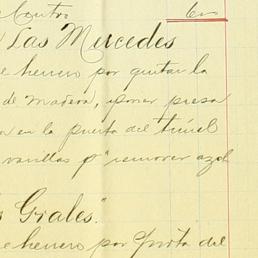 Contra 6
Las Mercedes
e herrero por quitar la
de madera, i poner presa
en la puerta del túnel
varillas p" remover azol
s Giales."
e herrero por Junta del